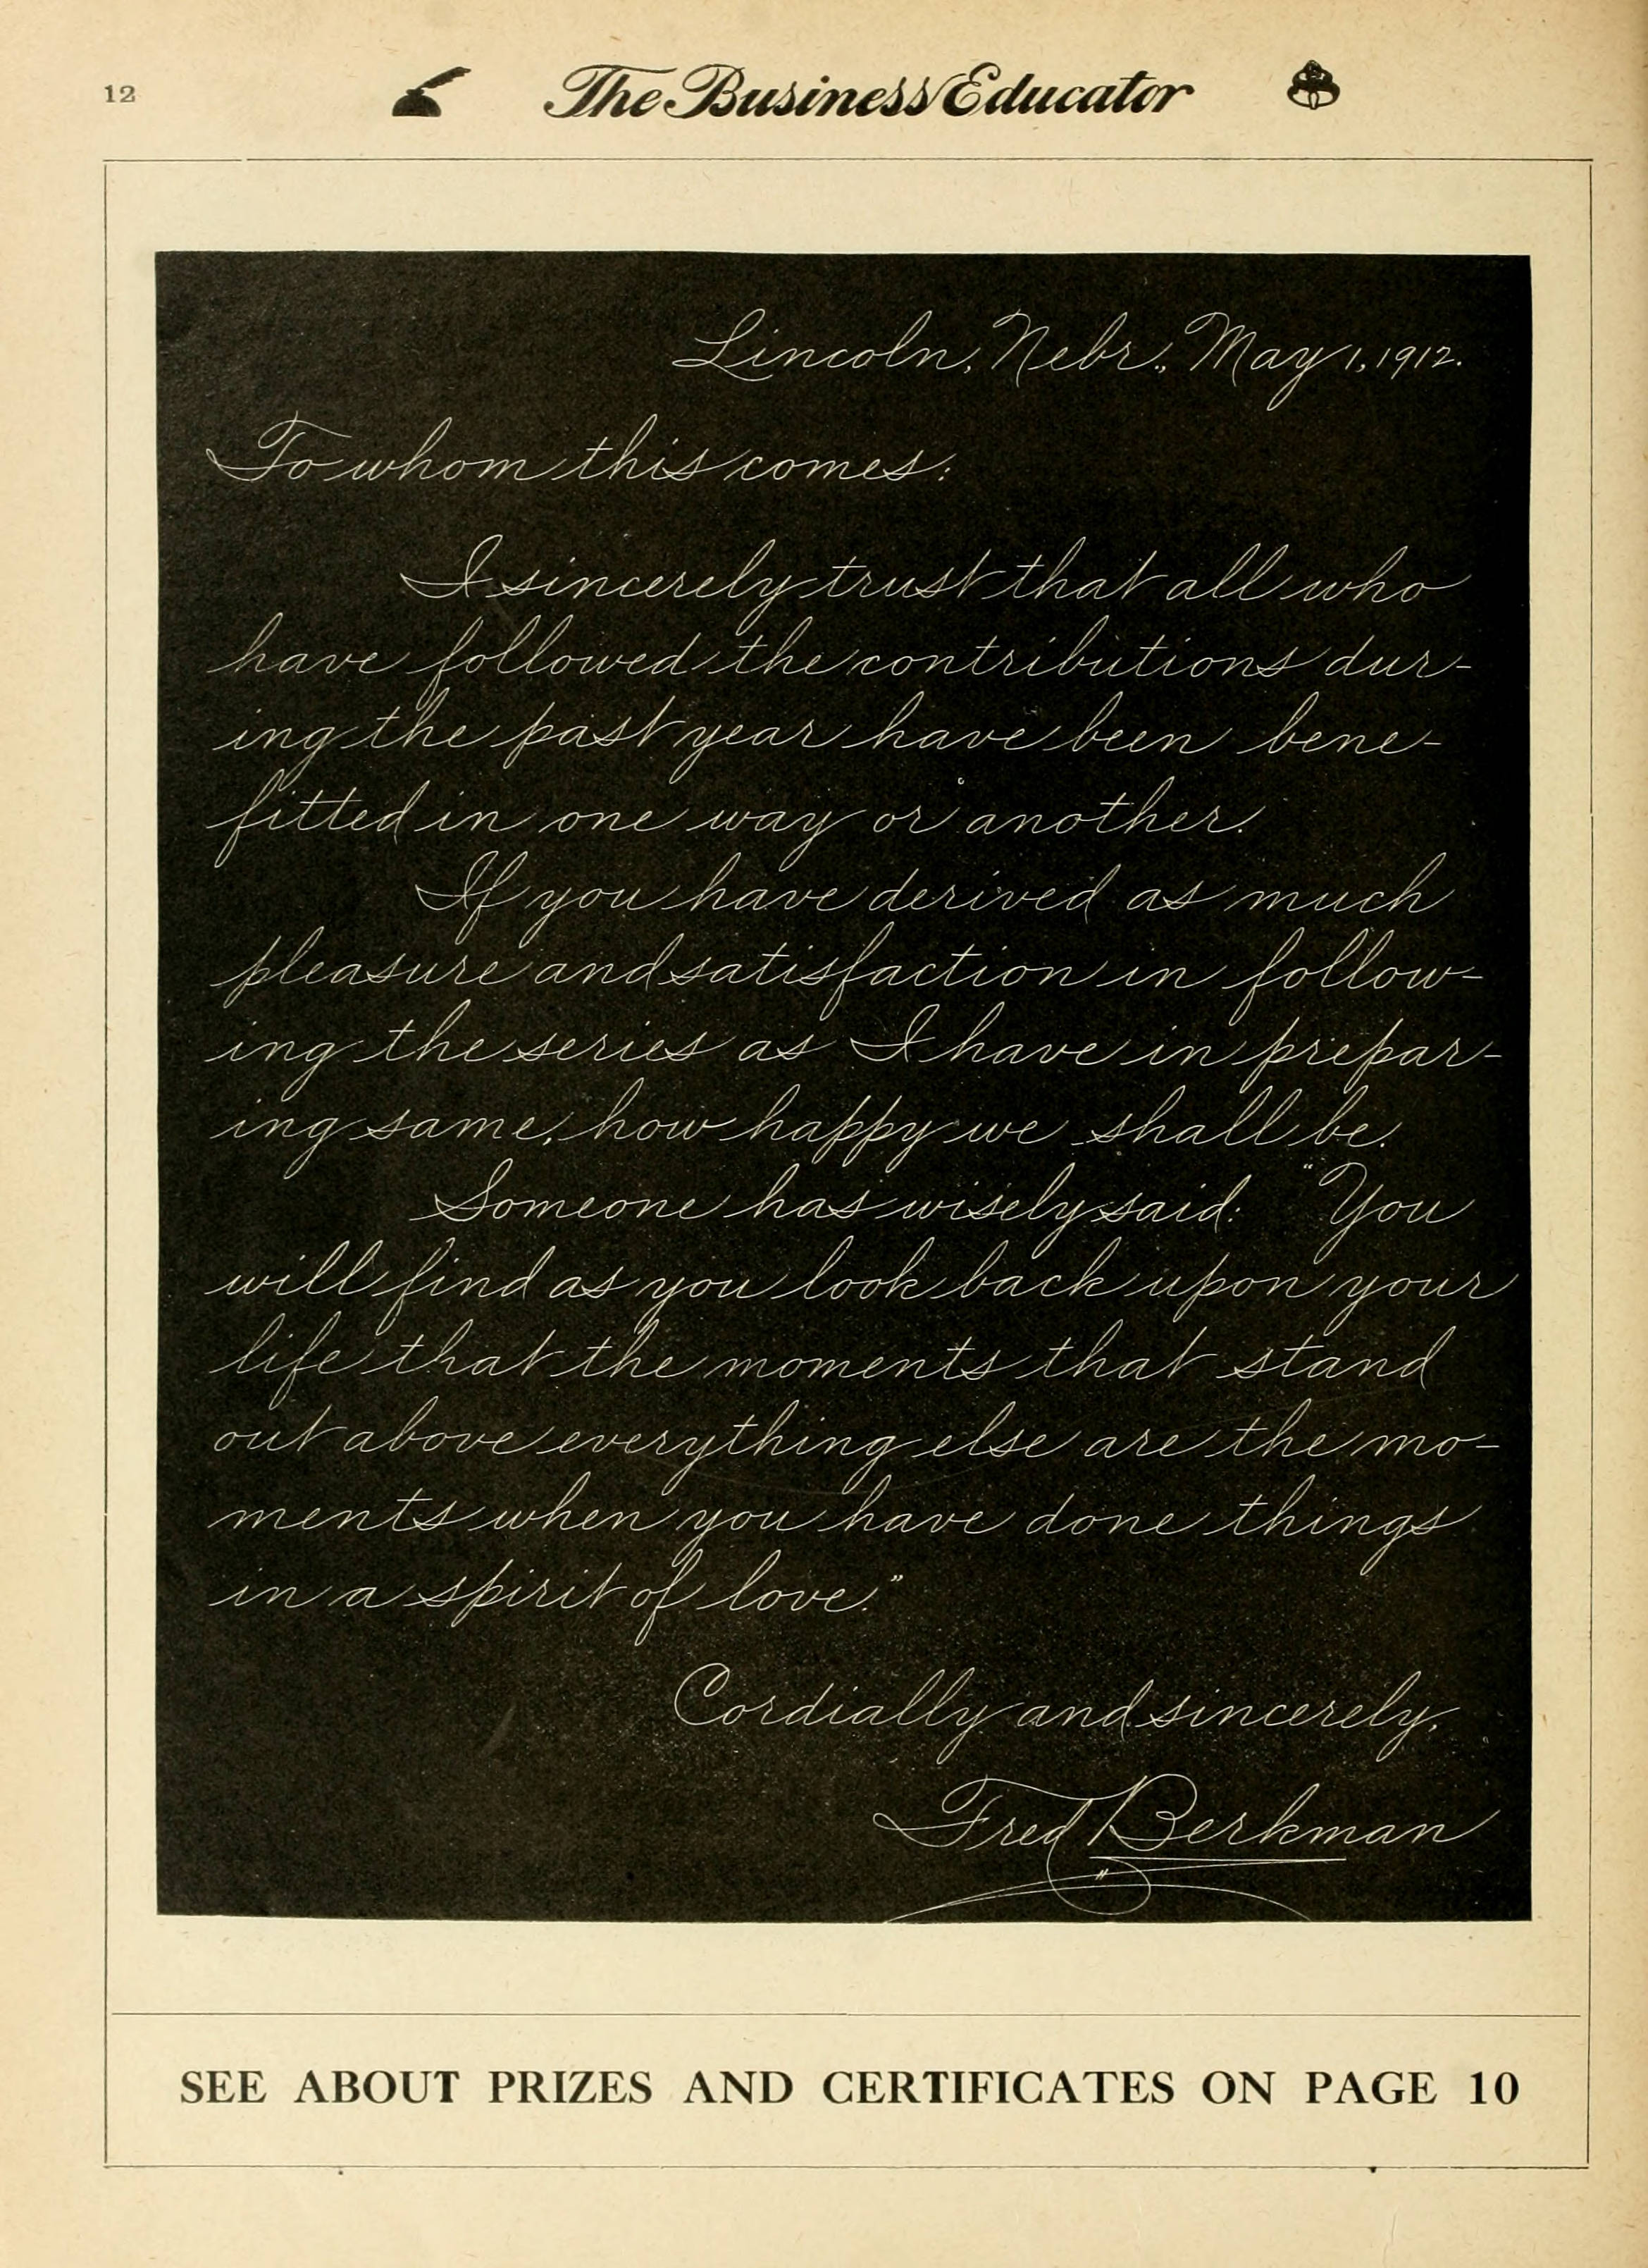 12
The Business Educator
Lincoln, Nebr., May 1, 1912.
To whom this comes:
I sincerely trust that all who
have followed the contributions dur-
ing the past year have been bene-
fitted in one way or another.
If you have derived as much
pleasure and satisfaction in follow-
ing the series as I have in prepar-
ing same, how happy we shall be.
Someone has wisely said: "You
will find as you look back upon your
life that the moments that stand
out above everything else are the mo-
ments when you have done things
in a spirit of love."
Cordially and sincerely,
Fred Berkman
SEE ABOUT PRIZES AND CERTIFICATES ON PAGE 10